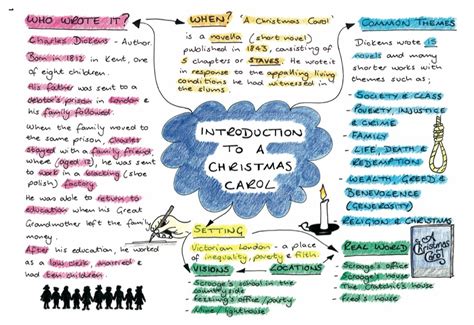 WHO WROTE IT?
Charles Dickens - Author.
Born in 1812 in Kent, one
of eight children.
His father was sent to a
debtor's prison in London &
his family followed.
When the family moved to
the same prison, Charles
stayed with a family friend,
where (aged 12), he was sent
to work in a blacking (shoe
polish) factory.
He was able to return to
education when his Great
Grandmother left the family
money.
After his education, he worked
as a law clerk, married &
had ten children.
WHEN?
'A Christmas Carol'
is a novella (short novel)
published in 1843, (consisting of
5 chapters or STAVES. He wrote
it in response to the appalling living
conditions he had witnessed in
the slums.
INTRODUCTION
TO A
CHRISTMAS
CAROL
SETTING
Victorian London - a place
of inequality, poverty & filth.
VISIONS
LOCATIONS
- Scrooge's school in the
countryside
- Fezziwig's office/party
- Mine/lighthouse
COMMON THEMES
Dickens wrote 15
novels and many
shorter works with
themes such as;
- SOCIETY & CLASS
- POVERTY, INJUSTICE
& CRIME
- FAMILY
- LIFE, DEATH &
REDEMPTION
- WEALTH, GREED &
BENEVOLENCE
GENEROSITY
- RELIGION & CHRISTMAS
REAL WORLD
- Scrooge's office
- Scrooge's house
- The Cratchit's house
- Fred's house
A
Christmas
Carol